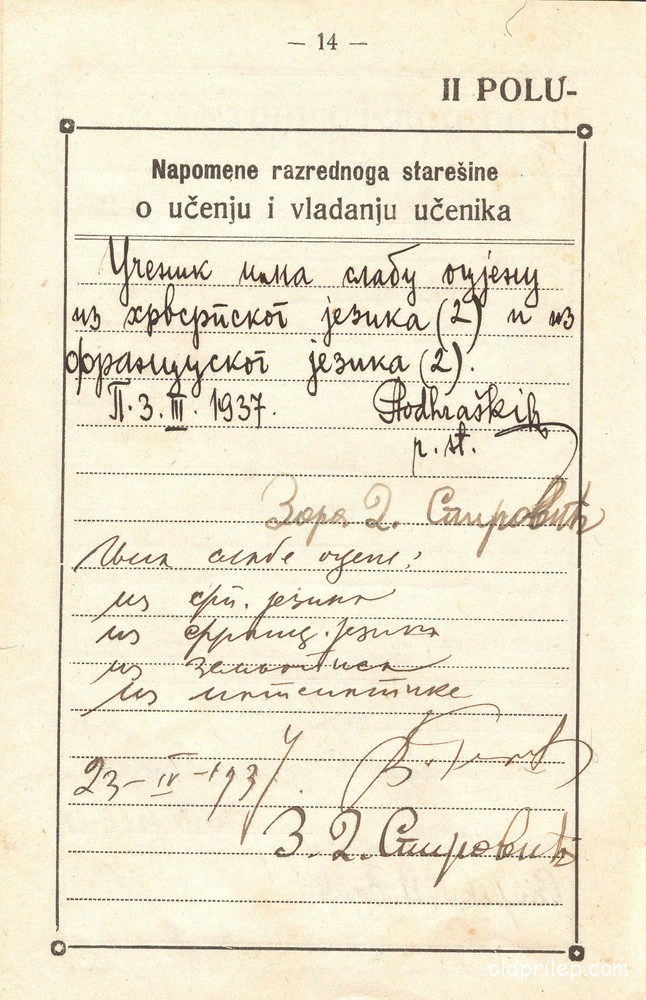 — 14 —
II POLU-
Napomene razrednoga starešine
o učenju i vladanju učenika
Ученик има слабу оцјену
из хрвсрпског језика (2) и из
француског језика (2).
П. 3. III. 1937.
r. st.
Зора Д. Спировић
Има слабе оцене:
из срп. језика
из францу. језика
из земљописа
из математике
23-IV-1937.
З. Д. Спировић
oldprilep.com